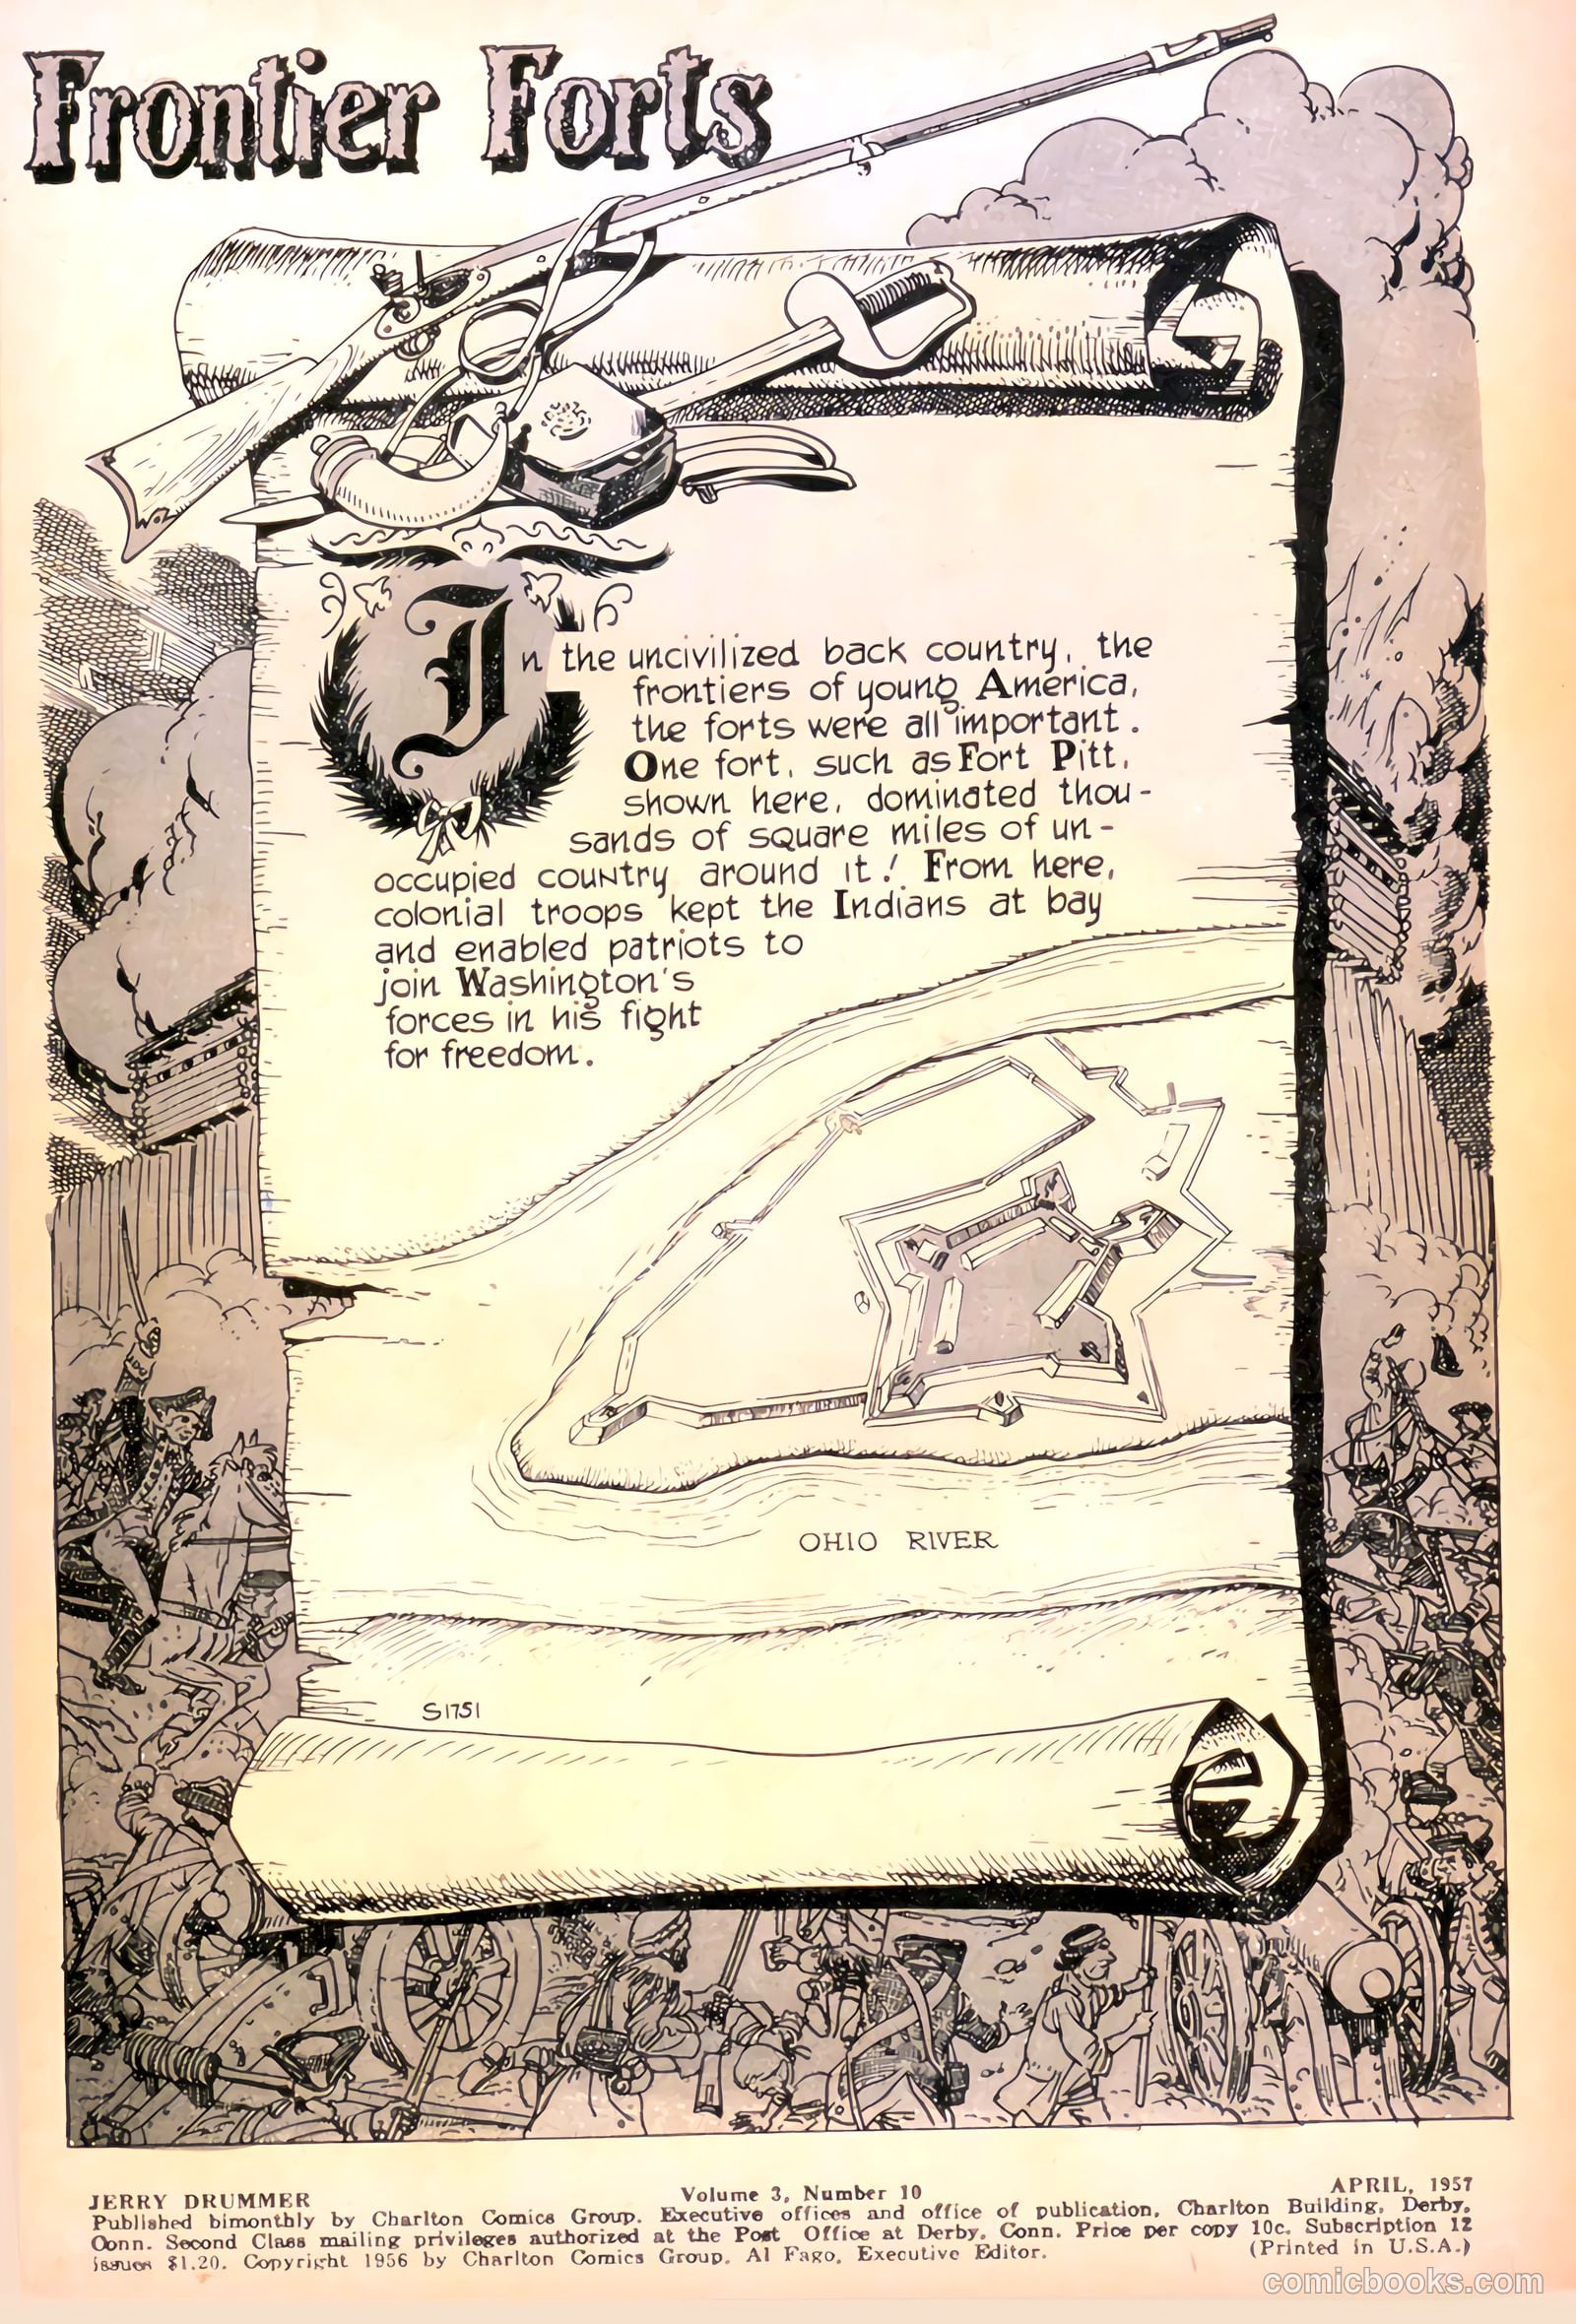 Frontier Forts
In the uncivilized back country, the
frontiers of young America,
the forts were all important.
One fort, such as Fort Pitt,
shown here, dominated thou-
sands of square miles of un-
occupied country around it! From here,
colonial troops kept the Indians at bay
and enabled patriots to
join Washington's
forces in his fight
for freedom.
OHIO RIVER
S1751
JERRY DRUMMER Volume 3, Number 10 APRIL, 1957
Published bimonthly by Charlton Comics Group. Executive offices and office of publication, Charlton Building, Derby,
Conn. Second Class mailing privileges authorized at the Post Office at Derby, Conn. Price per copy 10c. Subscription 12
issues $1.20. Copyright 1956 by Charlton Comics Group. Al Fago, Executive Editor. (Printed in U.S.A.)
comicbooks.com